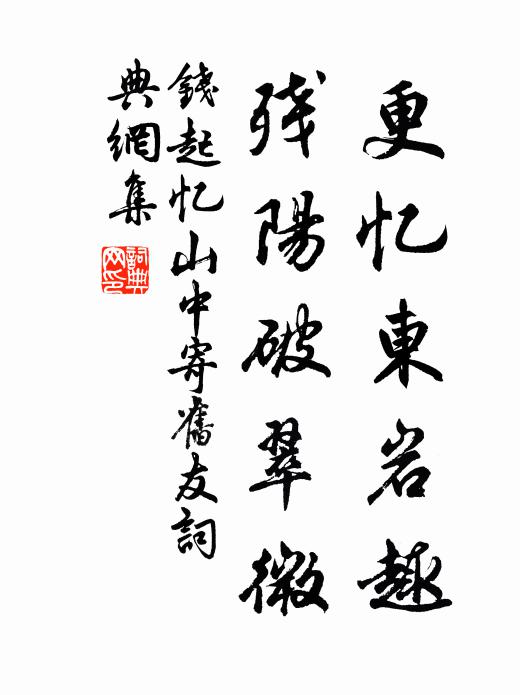 更忆東岩趣
残陽破翠微
錢起忆山中寄舊友詞
典網集
詞典
网印